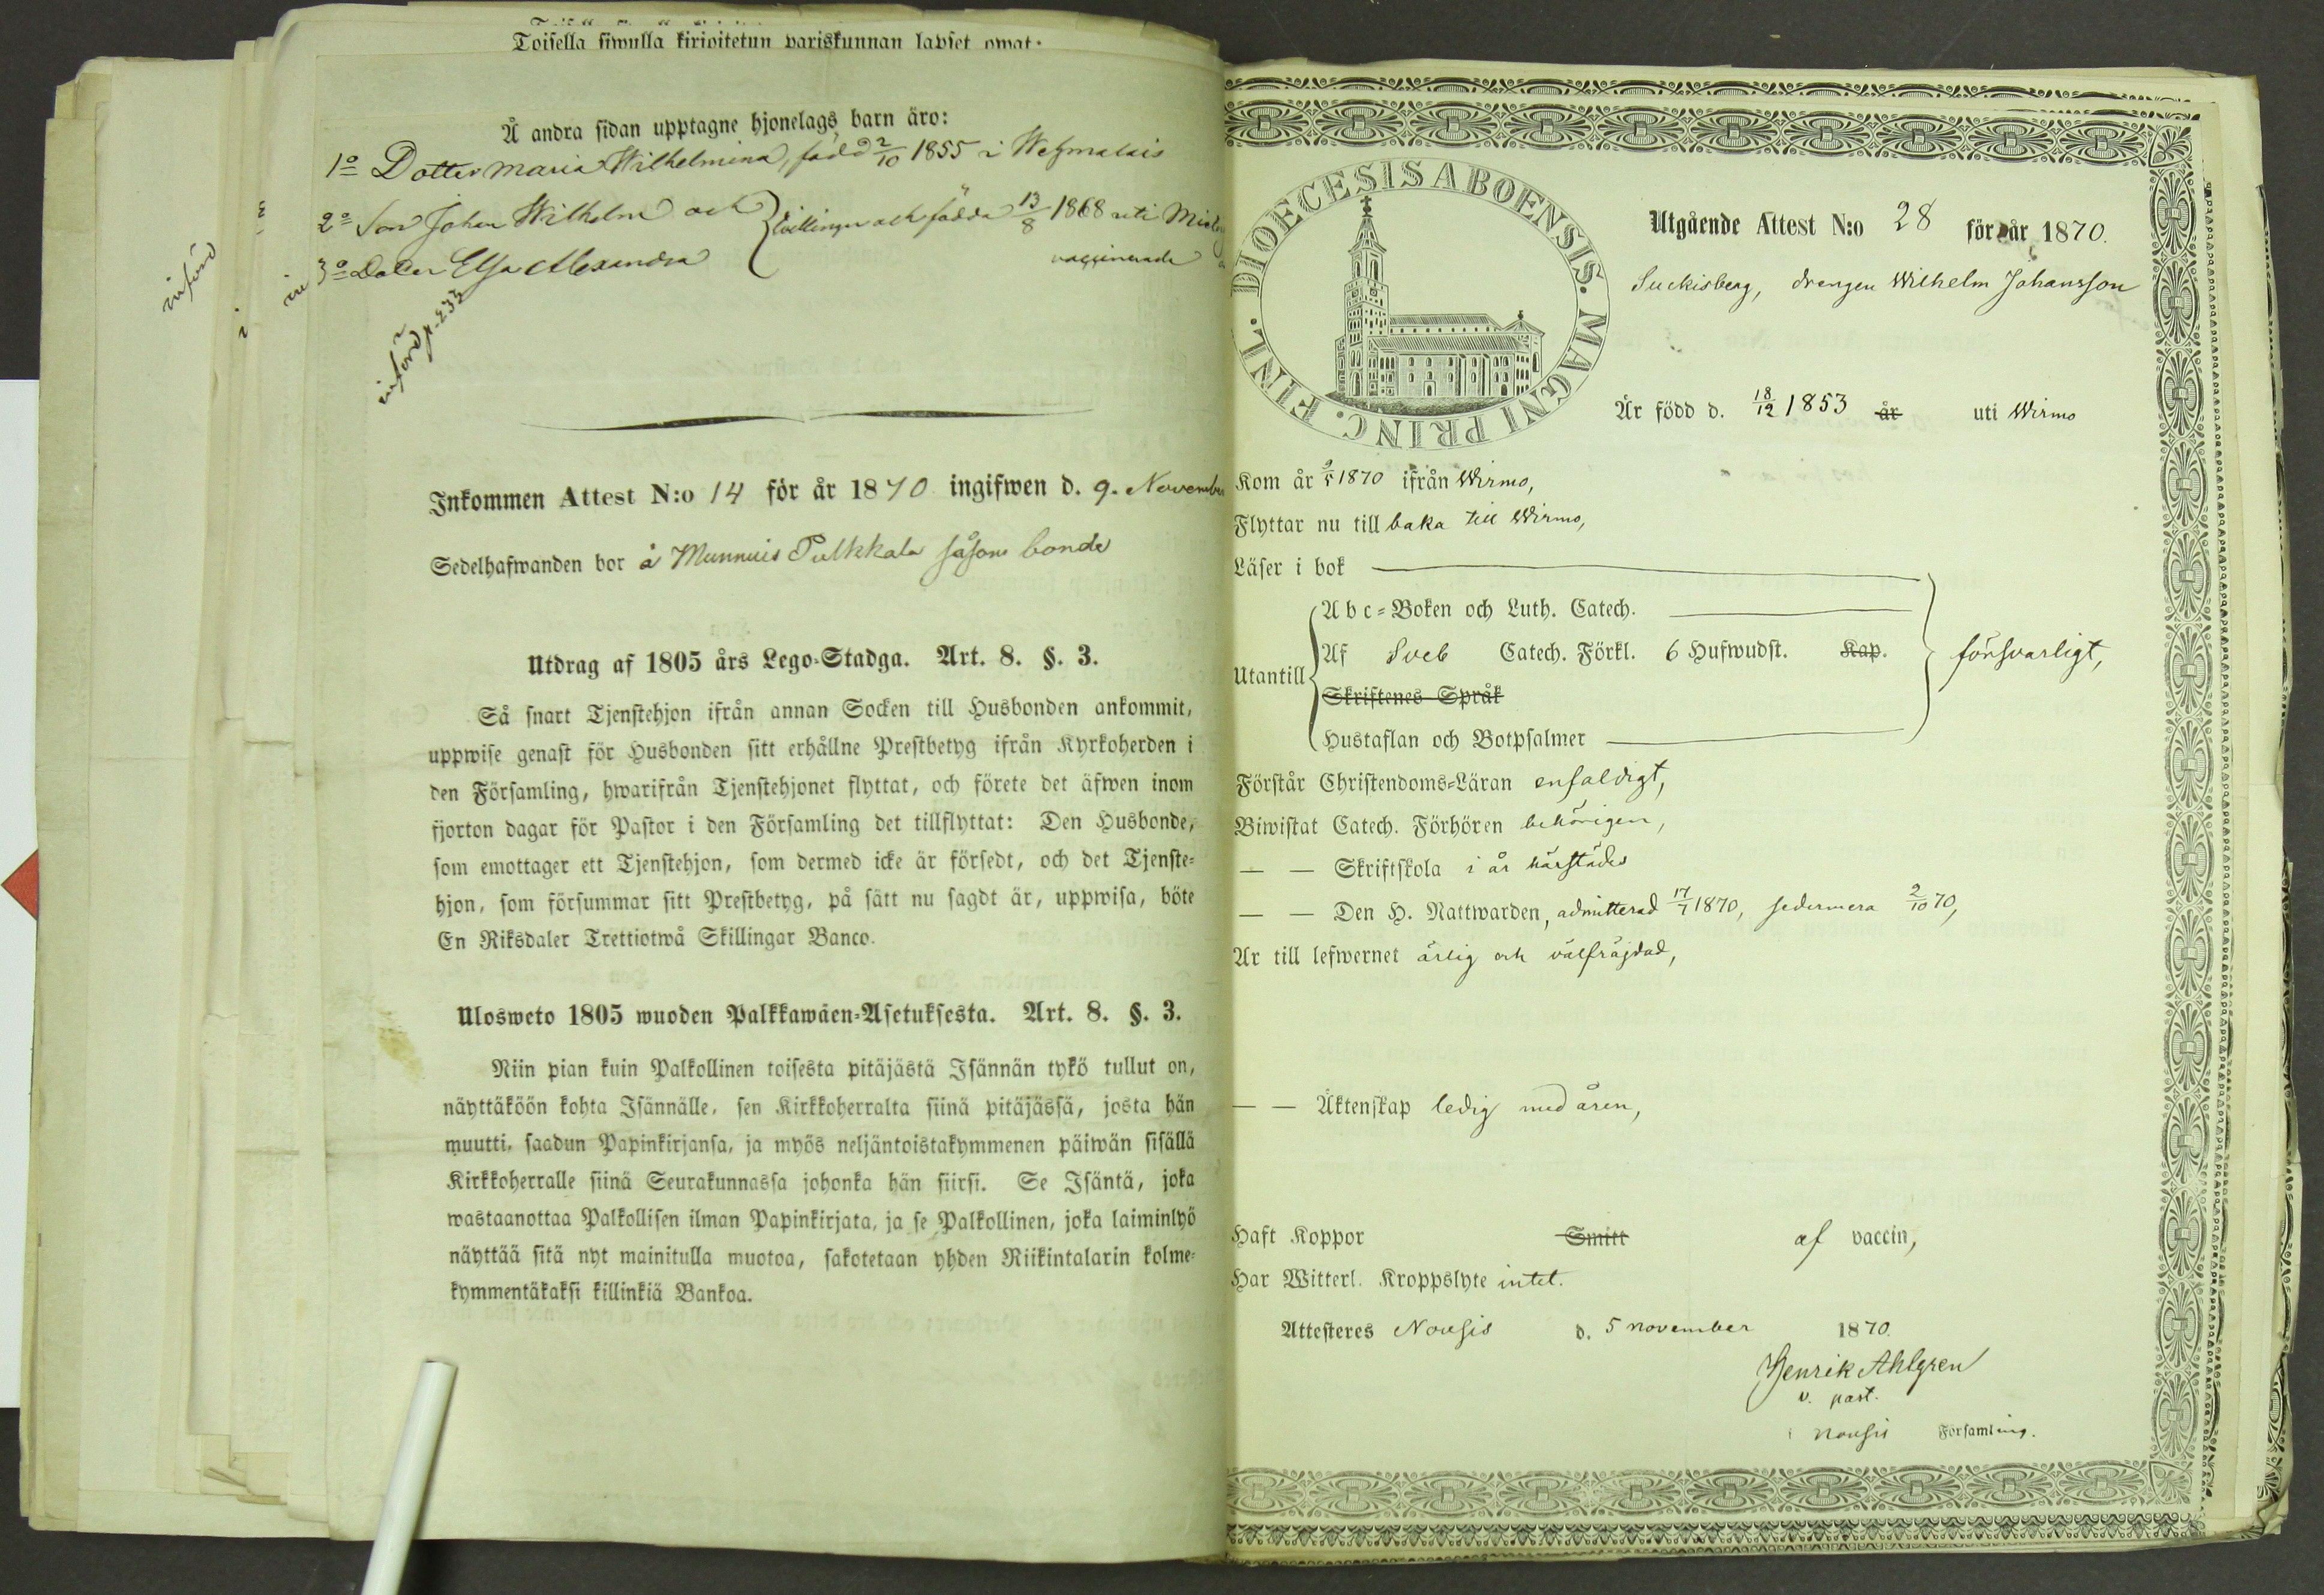 Toisella siwulla kirjoitetun pariskunnan lapset owat:
Å andra sidan upptagne hjonelags barn äro:
1o Dotter Maria Wilhelmina, född 2/10 1855 i Wehmalais
2o Son Johan Wilhelm och
tvillingar och födda 13/8 1868 uti
3o Dotter Elsa Alexandra
vaccinerade
införd
införd p. 233
Inkommen Attest N:o 14 för år 1870 ingifwen d. 9. November
Sedelhafwanden bor å Munnuis Pulkkala såsom bonde
Utdrag af 1805 års Lego-Stadga. Art. 8. §. 3.
Så snart Tjenstehjon ifrån annan Socken till Husbonden ankommit,
uppwise genast för Husbonden sitt erhållne Prestbetyg ifrån Kyrkoherden i
den Församling, hwarifrån Tjenstehjonet flyttat, och förete det äfwen inom
fjorton dagar för Pastor i den Församling det tillflyttat: Den Husbonde,
som emottager ett Tjenstehjon, som dermed icke är försedt, och det Tjenste-
hjon, som försummar sitt Prestbetyg, på sätt nu sagdt är, uppwisa, böte
En Riksdaler Trettiotwå Skillingar Banco.
Ulosweto 1805 wuoden Palkkawäen-Asetuksesta. Art. 8. §. 3.
Niin pian kuin Palkollinen toisesta pitäjästä Isännän tykö tullut on,
näyttäköön kohta Isännälle, sen Kirkkoherralta siinä pitäjässä, josta hän
muutti, saadun Papinkirjansa, ja myös neljäntoistakymmenen päiwän sisällä
Kirkkoherralle siinä Seurakunnassa johonka hän siirsi. Se Isäntä, joka
wastaanottaa Palkollisen ilman Papinkirjata, ja se Palkollinen, joka laiminlyö
näyttää sitä nyt mainitulla muotoa, sakotetaan yhden Riikintalarin kolme-
kymmentäkaksi killinkiä Bankoa.
DIOECESIS ABOENSIS. MAGNI PRINC. FINL.
Utgående Attest N:o 28 för år 1870.
Suckisberg, drengen Wilhelm Johansson
Är född d. 18/12 1853 år uti Wirmo
Kom år 9/5 1870 ifrån Wirmo,
Flyttar nu till baka till Wirmo,
Läser i bok
Abc-Boken och Luth. Catech.
Utantill Af Sveb Catech. Förkl. 6 Hufwudst. Kap. försvarligt,
Skriftenes Språk
Hustaflan och Botpsalmer
Förstår Christendoms-Läran enfaldigt,
Biwistat Catech. Förhören behörigen,
— — Skriftskola i år härstädes
— — Den H. Nattwarden, admitterad 17/7 1870, sedermera 2/10 70,
Är till lefwernet ärlig och välfräjdad,
— — Äktenskap ledig med åren,
Haft Koppor Smitt af vaccin,
Har Witterl. Kroppslyte intet.
Attesteres Nousis d. 5 november 1870.
Henrik Ahlgren
v. past.
i Nousis Församling.